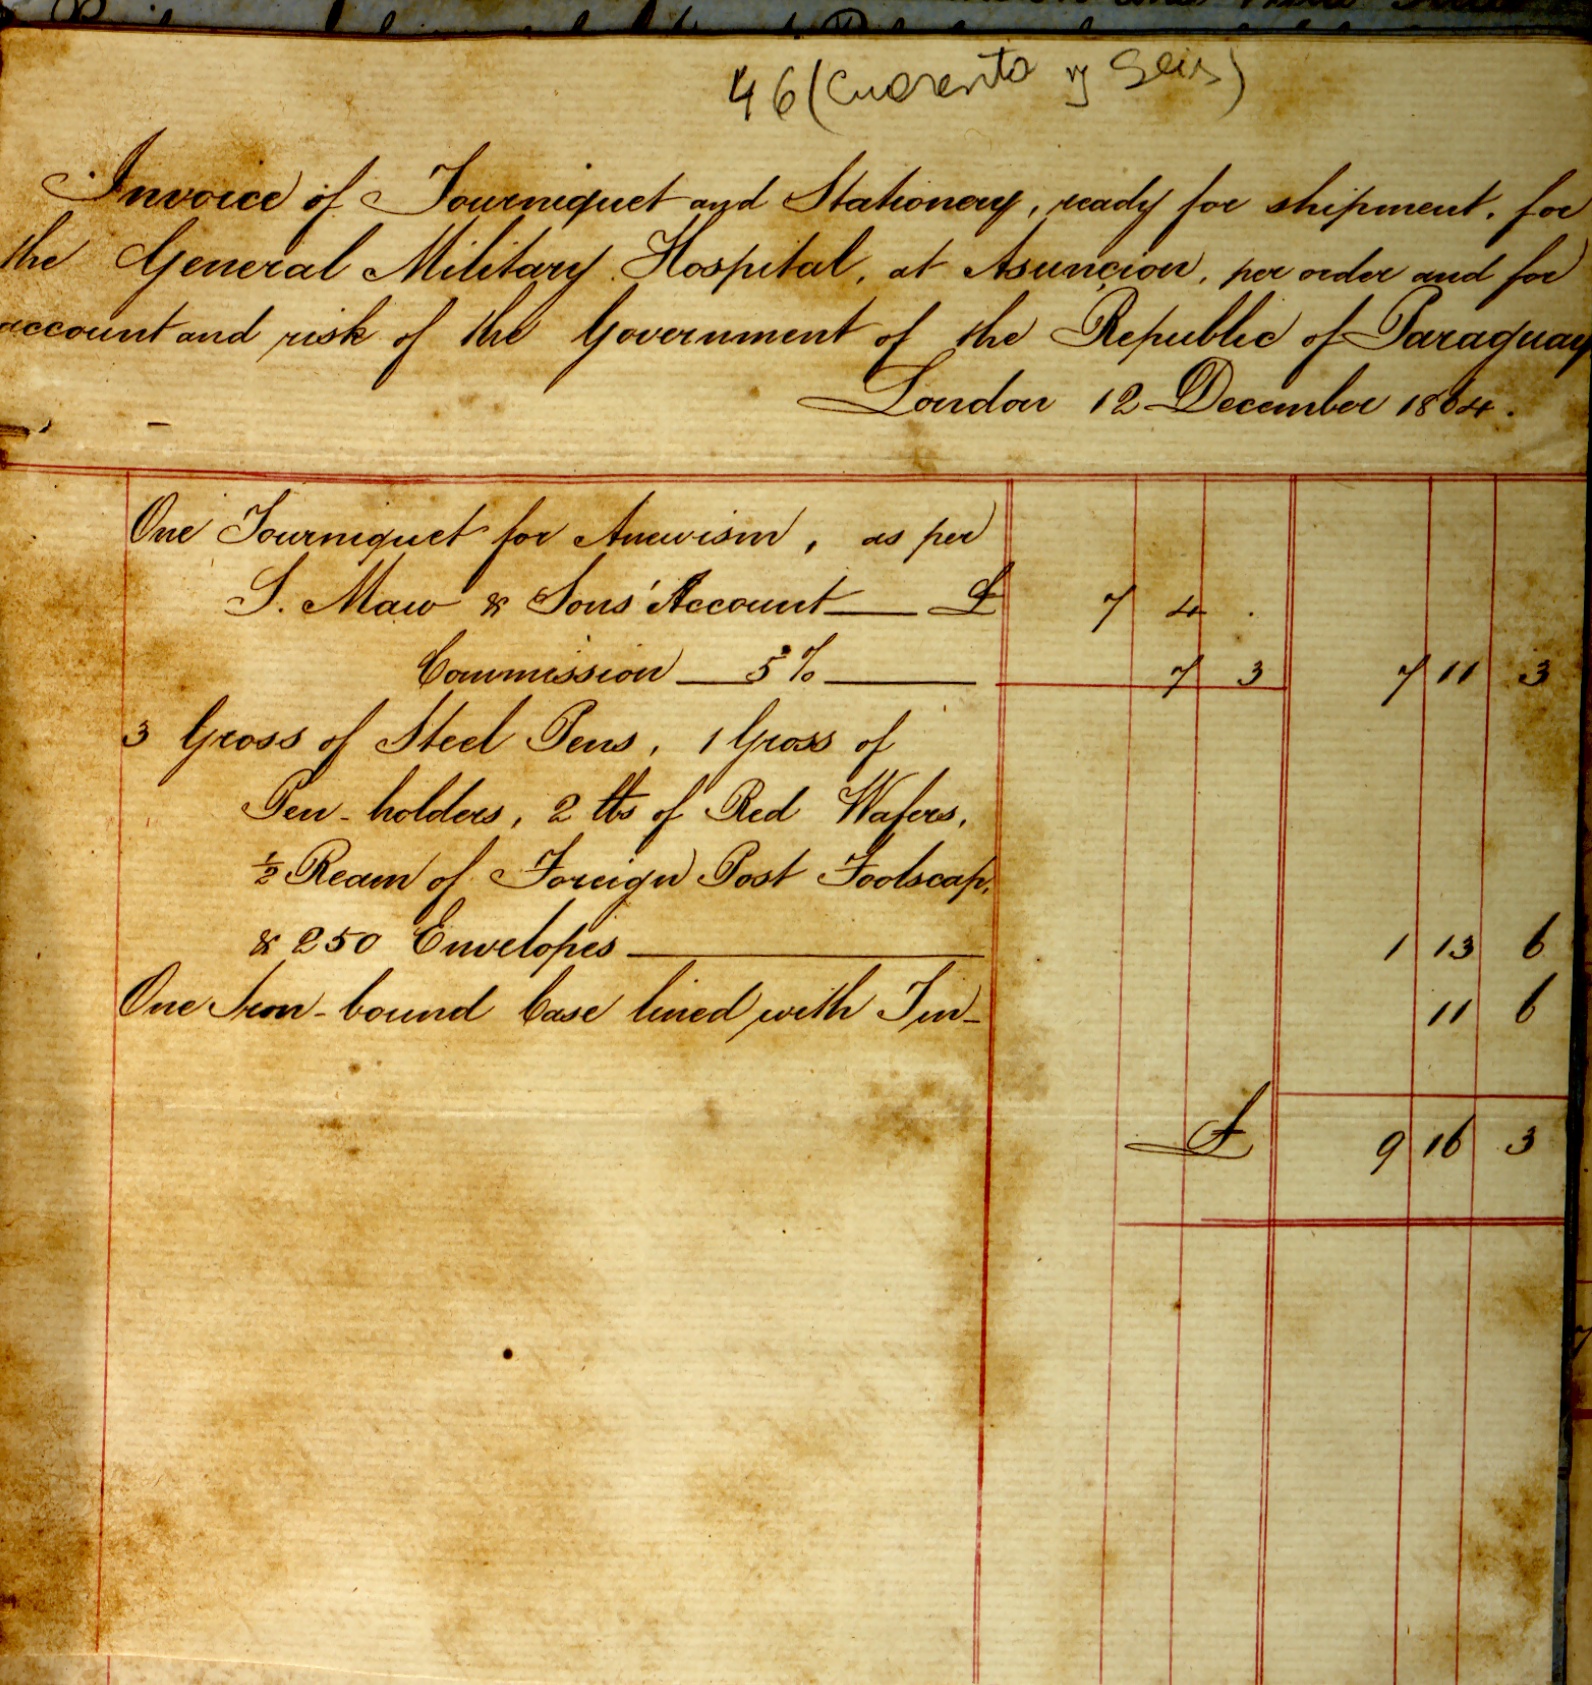 46 (Cuarenta y Seis)
Invoice of Tourniquet and Stationery, ready for shipment, for
the General Military Hospital, at Asunçion, per order and for
account and risk of the Government of the Republic of Paraguay
London 12 December 1864.
One Tourniquet for Aneurism, as per
S. Maw & Sons' Account £ 7 4 .
Commission 5% 7 3 7 11 3
3 Gross of Steel Pens, 1 Gross of
Pen-holders, 2 lbs of Red Wafers,
½ Ream of Foreign Post Foolscap,
& 250 Envelopes 1 13 6
One Iron-bound Case lined with Tin 11 6
£ 9 16 3